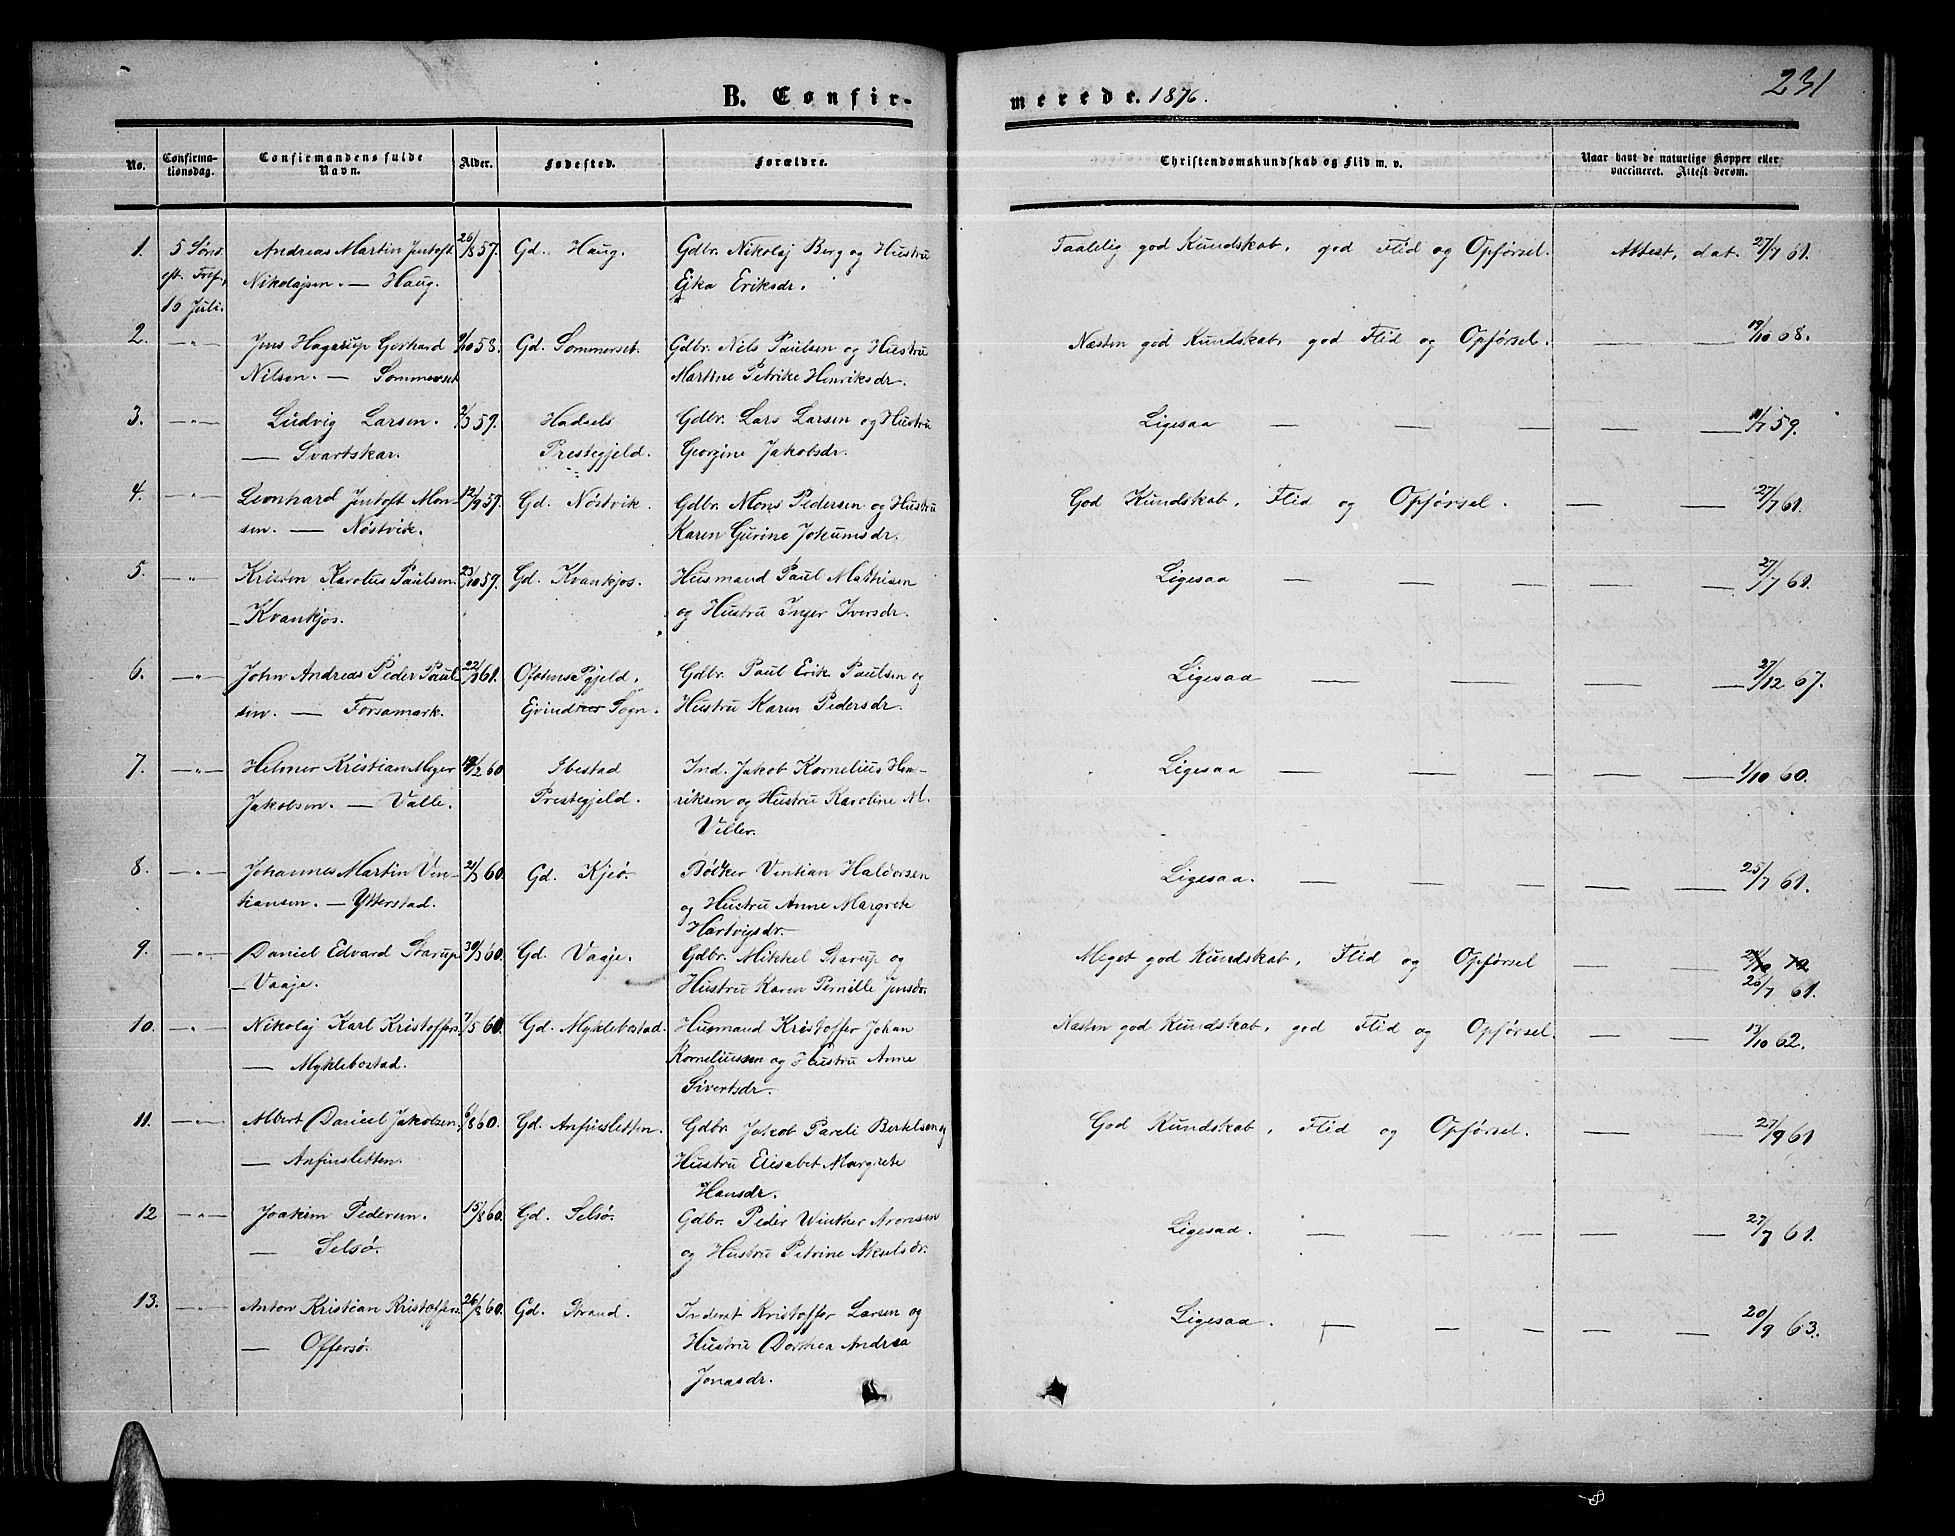 231
B. Confirmerede. 1876.
No. Confirmationsdag. Confirmandens fulde Navn. Alder. Fødested. Forældre. Christendomskundskab og Flid m. v. Naar havt de naturlige Kopper eller vaccineret. Attest derom.
1. 5 Sønd. Andreas Martin Jentoft 26/8 57. Gd. Haug. Gdbr. Nikolaj Berg og Hustru Taalelig god Kundskab, god Flid og Opførsel. Attest, dat. 27/7 61.
eft. Tref., Nikolajsen. — Haug. Ejka Eriksdr.
16 Juli.
2. —"— Jens Hagerup Gerhard 9/10 58. Gd. Sommerset. Gdbr. Nils Paulsen og Hustru Næsten god Kundskab, god Flid og Opførsel. — — 19/10 68.
Nilsen. — Sommerset Martine Petrike Henriksdr.
3. —"— Ludvig Larsen. 2/3 59. Hadsels Gdbr. Lars Larsen og Hustru Ligesaa — — — — — 11/7 59.
— Svartskar. Prestegjeld. Georgine Jakobsdr.
4. —"— Leonhard Jentoft Mon- 12/9 57. Gd. Nøstvik. Gdbr. Mons Pedersen og Hustru God Kundskab, Flid og Opførsel. — — 27/7 61.
sen. — Nøstvik. Karen Gurine Jokumsdr.
5. —"— Kristen Karolus Paulsen. 23/10 59. Gd. Kvankjos. Husmand Paul Mathisen Ligesaa — — — — — 27/7 61.
— Kvankjos. og Hustru Inger Iversdr.
6. —"— John Andreas Peder Paul- 61. Ofotens Pgjeld. Gdbr. Paul Erik Paulsen og Ligesaa — — — — — 27/12 67.
sen. — Forsamark. Ejvindnes Sogn. Hustru Karen Pedersdr.
7. —"— Helmer Kristian Meyer 60 Ibestad Ind. Jakob Kornelius Hen- Ligesaa — — — — — 1/10 60.
Jakobsen. — Valle. Prestegjeld. riksen og Hustru Karoline M.
Viller.
8. —"— Johannes Martin Ven- 21/3 60. Gd. Kjeø. Bødker Ventian Haldorsen Ligesaa. — — — — — 25/7 61.
tiansen. — Ytterstad. og Hustru Anne Margrete
Hartvigsdr.
9. —"— Daniel Edvard Starup. 30/3 60. Gd. Vaaje. Gdbr. Mikkel Starup og Meget god Kundskab, Flid og Opførsel — —
— Vaaje. Hustru Karen Pernille Jensdr. 26/7 61.
10. —"— Nikolaj Karl Kristoffers. 7/5 60. Gd. Myklebostad. Husmand Kristoffer Johan Næsten god Kundskab, god Flid og Opførsel. — — 13/10 62.
— Myklebostad. Korneliussen og Hustru Anne
Sivertsdr.
11. —"— Albert Daniel Jakobsen, 6/8 60. Gd. Anfinsletten. Gdbr. Jakob Pareli Bertelsen og God Kundskab, Flid og Opførsel. — — 27/9 61
— Anfinsletten. Hustru Elisabet Margrete
Hansdr.
12 —"— Joakim Pedersen. 15/8 60. Gd. Selsø. Gdbr. Peder Winther Aronsen Ligesaa. — — — — — 27/7 61.
— Selsø. og Hustru Petrine Akselsdr.
13. —"— Anton Kristian Kristoffers. 26/8 60. Gd. Strand. Inderst Kristoffer Larsen og Ligesaa. — — — — — 20/9 63.
— Offersø. Hustru Dorthea Andrea
Jonasdr.